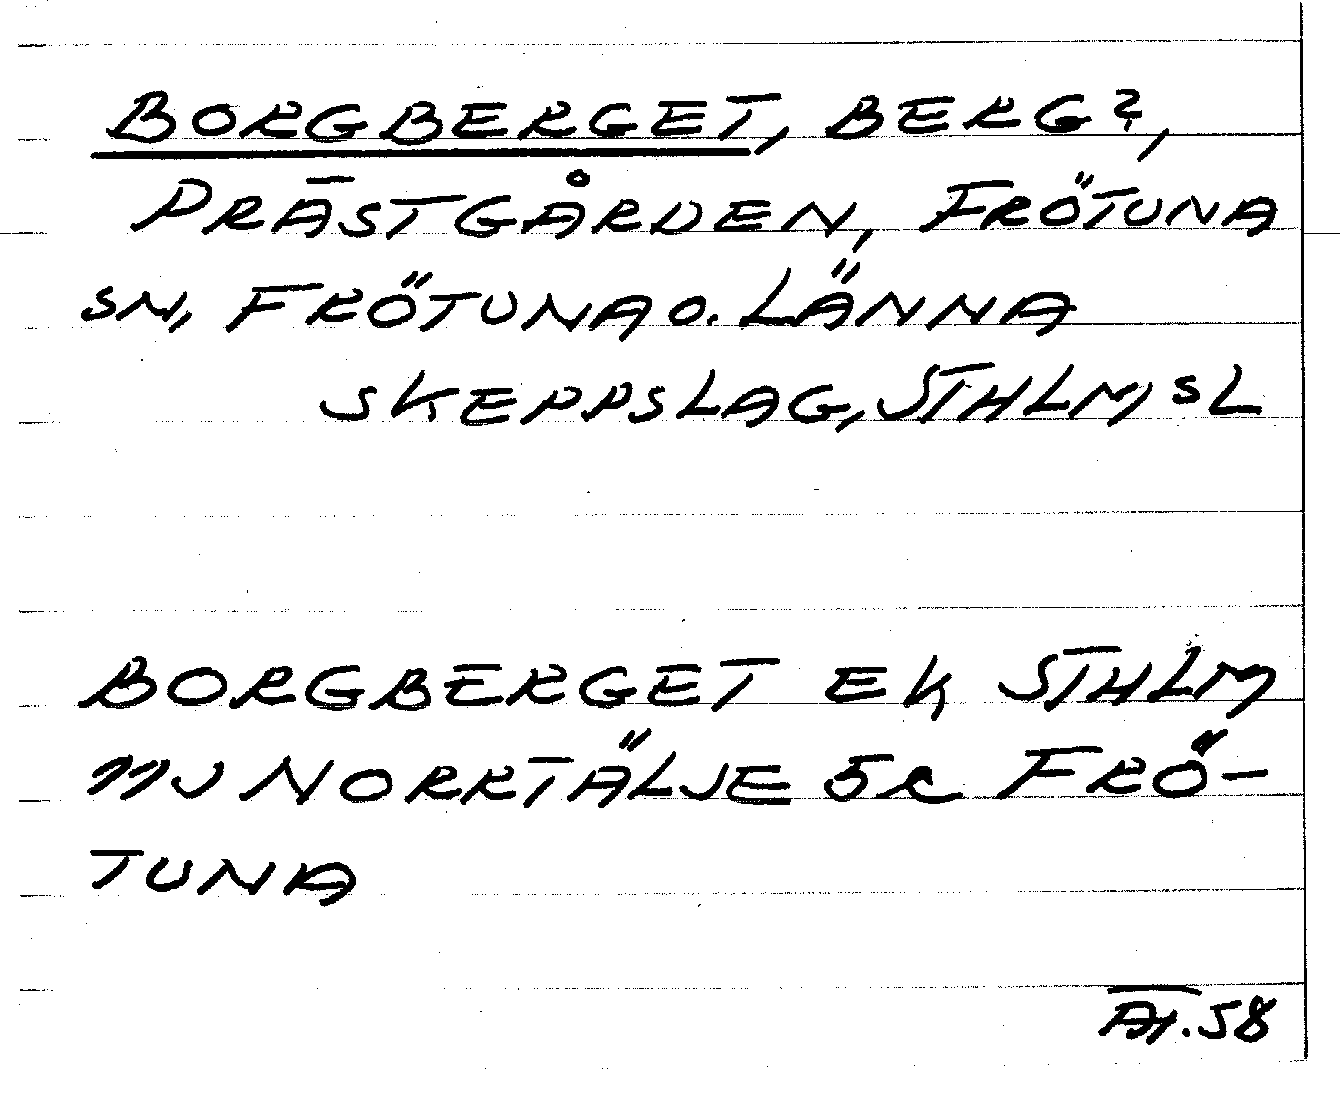 BORGBERGET, BERG?,
PRÄSTGÅRDEN, FRÖTUNA
SN, FRÖTUNA O. LÄNNA
SKEPPSLAG, STHLM, SL
BORGBERGET EK STHLM
11J NORRTÄLJE 5c FRÖ-
TUNA
58